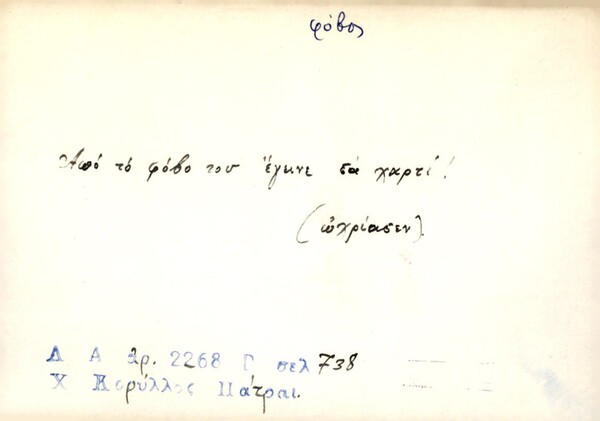 φόβος
Ἀπό τό φόβο του ἔγινε σά χαρτί!
(ὠχρίασεν).
Λ Α ἀρ. 2268 Γ σελ 738
Χ Κορύλλος Πάτραι.